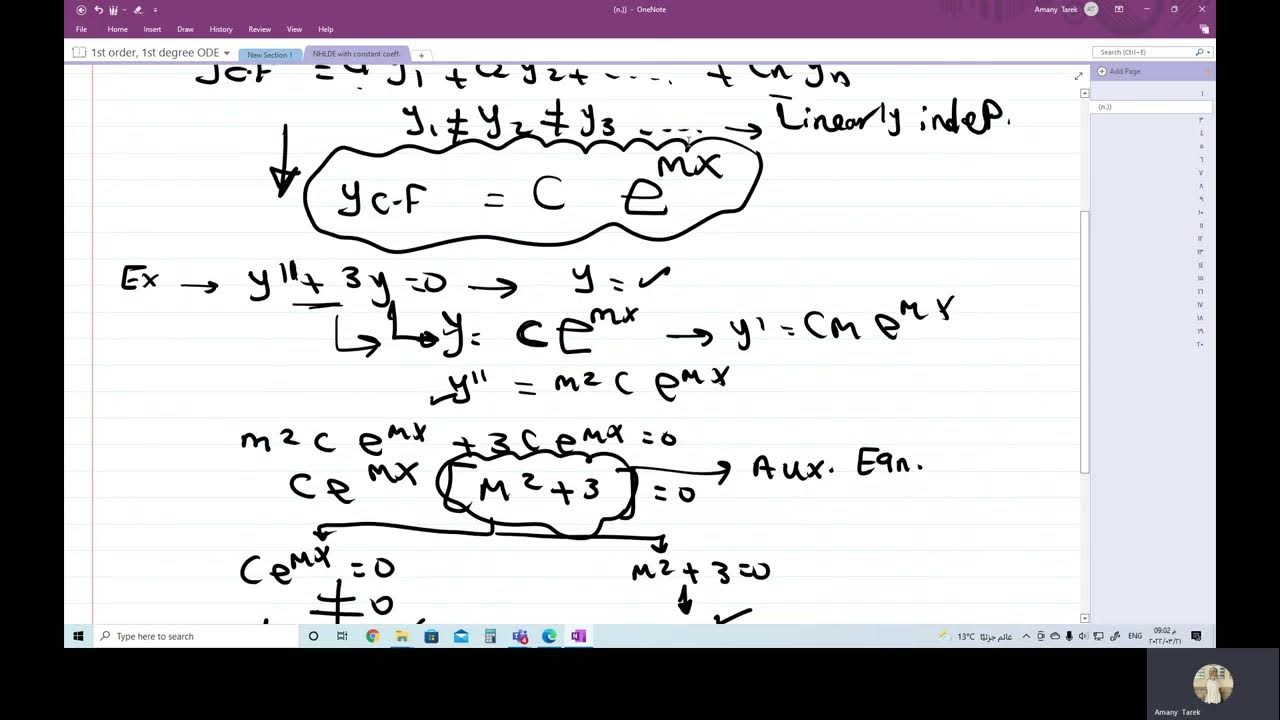 (n.)) - OneNote
Amany Tarek AT
File Home Insert Draw History Review View Help
1st order, 1st degree ODE
New Section 1
NHLDE with constant coeff.
Search (Ctrl+E)
Add Page
1
(n.))
٣
٤
٥
٦
٧
٨
٩
١٠
١١
١٢
١٣
١٤
١٥
١٦
١٧
١٨
١٩
٢٠
y1 ≠ y2 ≠ y3 ..... → Linearly indep.
yC.F = C e^mx
Ex → y" + 3y = 0 → y = ✓
y = C e^mx → y' = Cm e^mx
y" = m² C e^mx
m² C e^mx + 3C e^mx = 0
C e^mx [m² + 3] = 0 → Aux. Eqn.
C e^mx = 0 m² + 3 = 0
≠ 0
Type here to search
13°C غائم جزئيًا
ENG
09:02 م
٢٠٢٢/٠٣/٢١
Amany Tarek